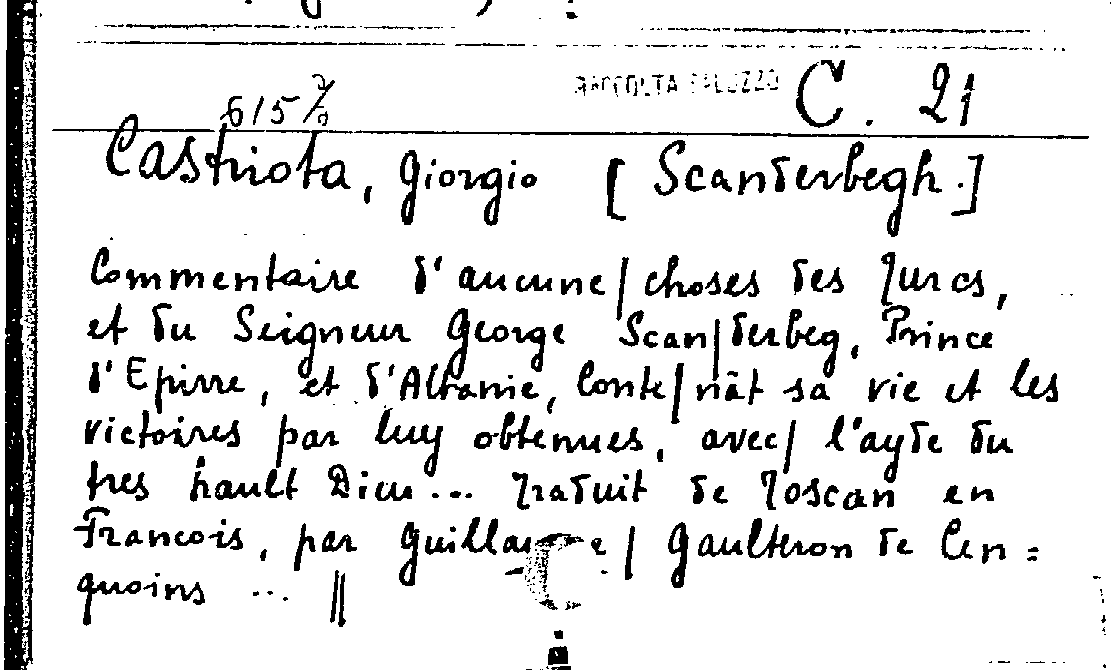 RACCOLTA C. 21
615%
Castriota, Giorgio [Scanderbegh.]
Commentaire d'aucune/choses des Turcs,
et du Seigneur George Scan/derbeg, Prince
d'Epirre, et d'Albanie, Conte/nāt sa vie et les
victoires par luy obtenues, avec/ l'ayde du
tres hault Dieu... Traduit de Toscan en
Francois, par Guillaume/ Gaulteron de Cen=
quoins ... ||